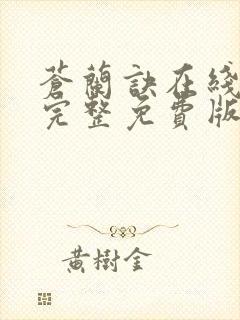 蒼蘭訣在綫
完整免費版
黃樹金